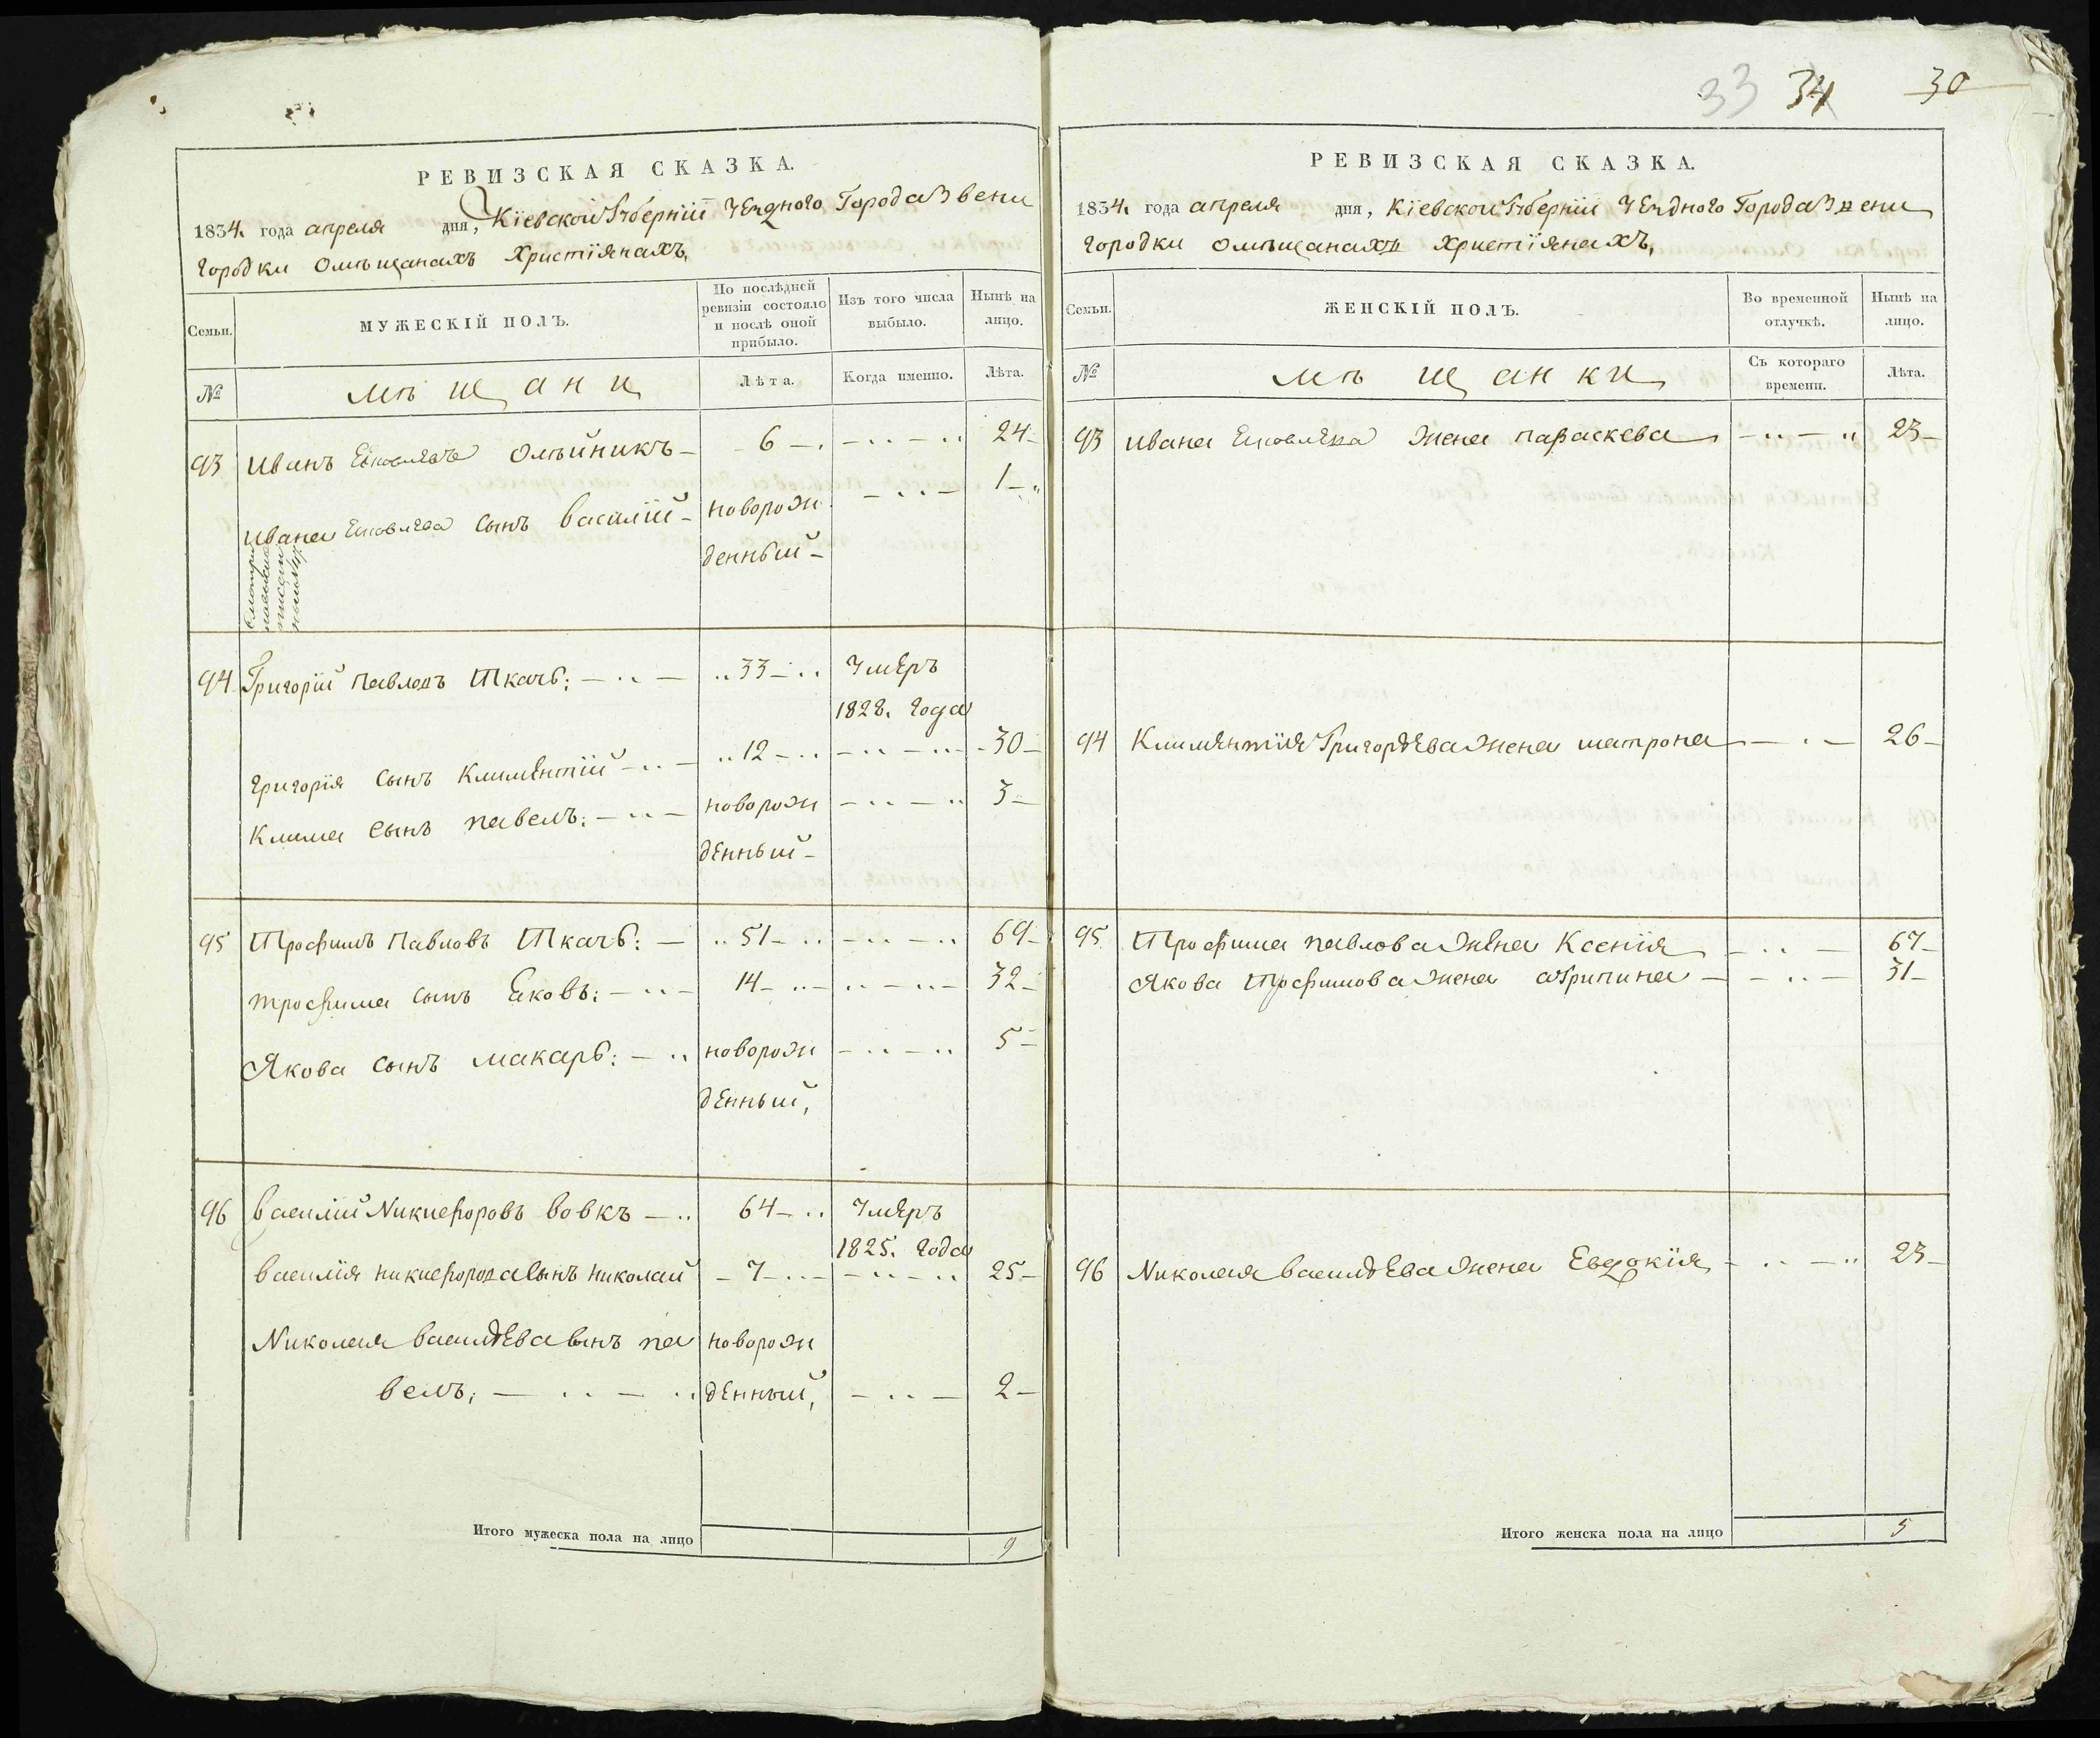 33 34 30
РЕВИЗСКАЯ СКАЗКА.
1834. года апреля дня, Кіевской Губерніи Уезднаго Города Звени
городки Омѣщанахъ Христіянахъ,
Семьи. МУЖЕСКІЙ ПОЛЪ. По послѣдней ревизіи состояло и послѣ оной прибыло. Изъ того числа выбыло. Нынѣ на лицо.
№ мѣщани Лѣта. Когда именно. Лѣта.
93 Иванъ Олѣйникъ 6 24
Ивана сынъ василій новорож 1
денный
94 Григорій Павловъ Ткачь: 33 Умеръ
1828. года
Григорія сынъ Климентій 12 30
Клима сынъ павелъ: новорож 3
денный
95 Трофимъ Павловъ Ткачь: 51 69
трофима сынъ Яковъ: 14 32
Якова сынъ макаръ: новорож 5
денный,
96 василій Никифоровъ вовкъ 64 Умеръ
1825. года
василія никифорова сынъ николай 7 25
Николая васильева сынъ па новорож
велъ; денный, 2
Итого мужеска пола на лицо 9
РЕВИЗСКАЯ СКАЗКА.
1834. года апреля дня, Кіевской Губерніи Уезднаго Города Звени
городки омѣщанахъ христіянахъ,
Семьи. ЖЕНСКІЙ ПОЛЪ. Во временной отлучкѣ. Нынѣ на лицо.
№ мѣщанки Съ котораго времени. Лѣта.
93 Ивана жена параскева 23
94 Климентія Григорьева жена матрона 26
95 Трофима павлова жена Ксенія 67
Якова Трофимова жена агрипина 31
96 Николая васильева жена Евдокія 23
Итого женска пола на лицо 5